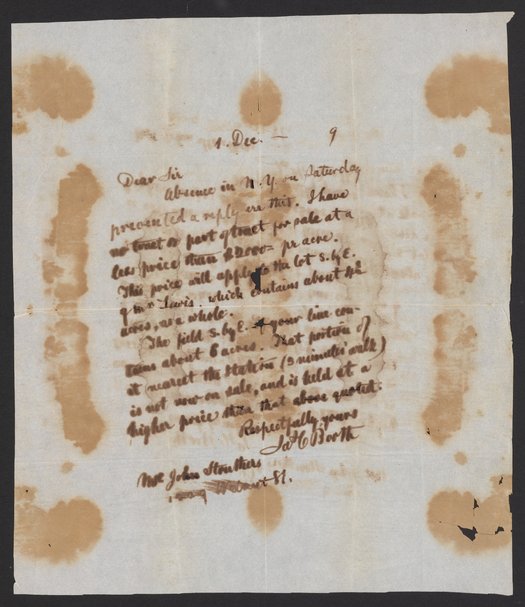 1. Dec. — 9
Dear Sir
Absence in N. Y. on Saturday
prevented a reply ere this. I have
no tract or part of tract for sale at a
less price than $2000= pr acre.
This price will apply to the lot S. by E.
of Mrs Lewis, which contains about 4½
acres, as a whole.
The field S. by E. of your line con-
tains about 6 acres. That portion of
it nearest the station (3 minutes' walk)
is not now on sale, and is held at a
higher price than that above quoted.
Respectfully yours
Jas C Booth
Mr. John Struthers
Walnut St.